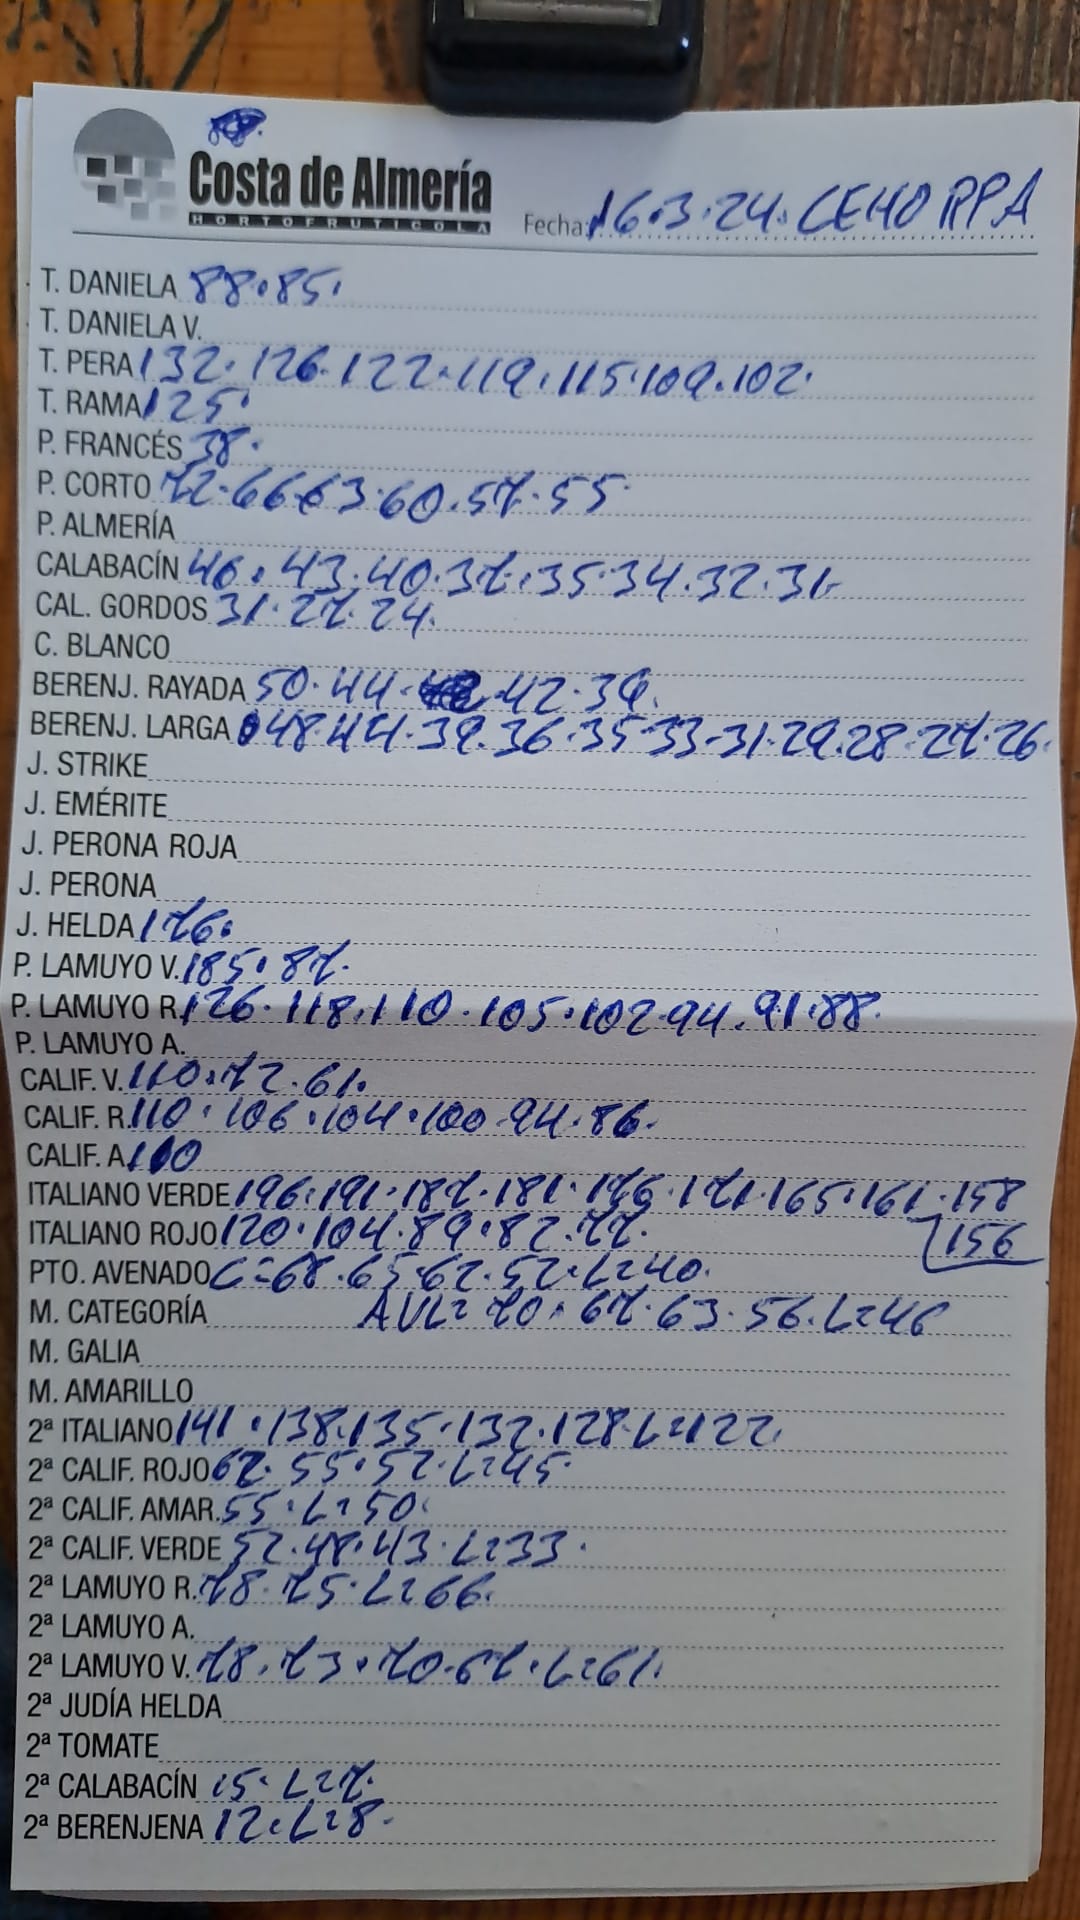 Costa de Almería
HORTOFRUTICOLA
Fecha: 16.3.24. CEHORPA
T. DANIELA 88.85.
T. DANIELA V.
T. PERA 132.126.122.119.115.109.102.
T. RAMA 125.
P. FRANCÉS 38.
P. CORTO 72.66.63.60.57.55.
P. ALMERÍA
CALABACÍN 46.43.40.37.35.34.32.31.
CAL. GORDOS 31.27.24.
C. BLANCO
BERENJ. RAYADA 50.44.42.39.
BERENJ. LARGA 48.44.39.36.35.33.31.29.28.27.26.
J. STRIKE
J. EMÉRITE
J. PERONA ROJA
J. PERONA
J. HELDA 176.
P. LAMUYO V. 185.87.
P. LAMUYO R. 126.118.110.105.102.94.91.88.
P. LAMUYO A.
CALIF. V. 110.72.61.
CALIF. R. 110.106.104.100.94.86.
CALIF. A. 100
ITALIANO VERDE 196.191.187.181.176.171.165.161.158
ITALIANO ROJO 120.104.89.82.77. 156
PTO. AVENADO C=68.65.62.52.L=40.
M. CATEGORÍA AVL=70.67.63.56.L=46
M. GALIA
M. AMARILLO
2ª ITALIANO 141.138.135.132.128.L=122.
2ª CALIF. ROJO 67.55.52.L=45.
2ª CALIF. AMAR. 55.L=50.
2ª CALIF. VERDE 52.48.43.L=33.
2ª LAMUYO R. 78.75.L=66.
2ª LAMUYO A.
2ª LAMUYO V. 78.73.70.67.L=61.
2ª JUDÍA HELDA
2ª TOMATE
2ª CALABACÍN 15.L=7.
2ª BERENJENA 12.L=8.